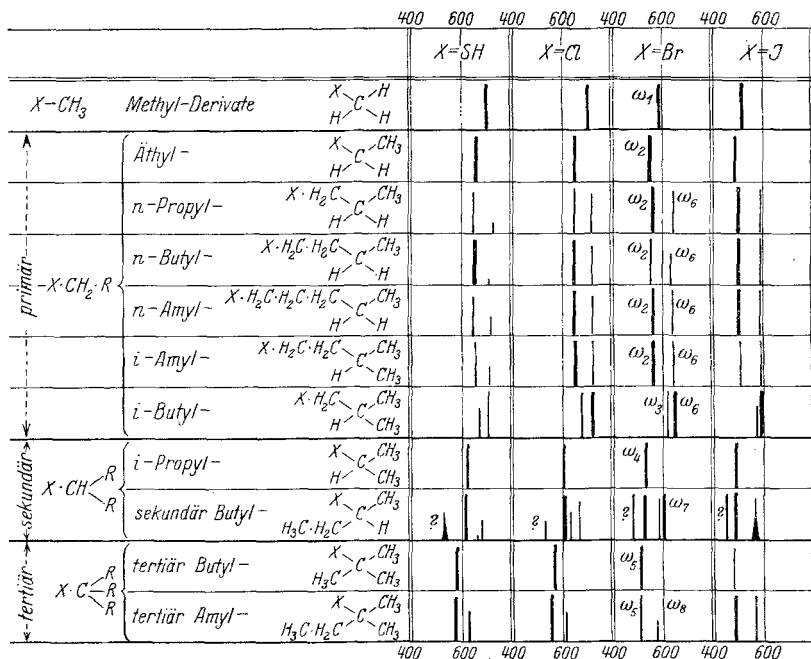 400 600 400 600 400 600 400 600
X=SH X=Cl X=Br X=J
X-CH₃ Methyl-Derivate X H C H H ω₁
primär
-X·CH₂·R
Äthyl- X CH₃ C H H ω₂
n-Propyl- X·H₂C CH₃ C H H ω₂ ω₆
n-Butyl- X·H₂C·H₂C CH₃ C H H ω₂ ω₆
n-Amyl- X·H₂C·H₂C·H₂C CH₃ C H H ω₂ ω₆
i-Amyl- X·H₂C·H₂C CH₃ C H CH₃ ω₂ ω₆
i-Butyl- X·H₂C CH₃ C H CH₃ ω₃ ω₆
sekundär
X·CH R R
i-Propyl- X CH₃ C H CH₃ ω₄
sekundär Butyl- X CH₃ C H₃C·H₂C H ? ? ? ω₇ ?
tertiär
X·C R R R
tertiär Butyl- X CH₃ C H₃C CH₃ ω₅
tertiär Amyl- X CH₃ C H₃C·H₂C CH₃ ω₅ ω₈
400 600 400 600 400 600 400 600